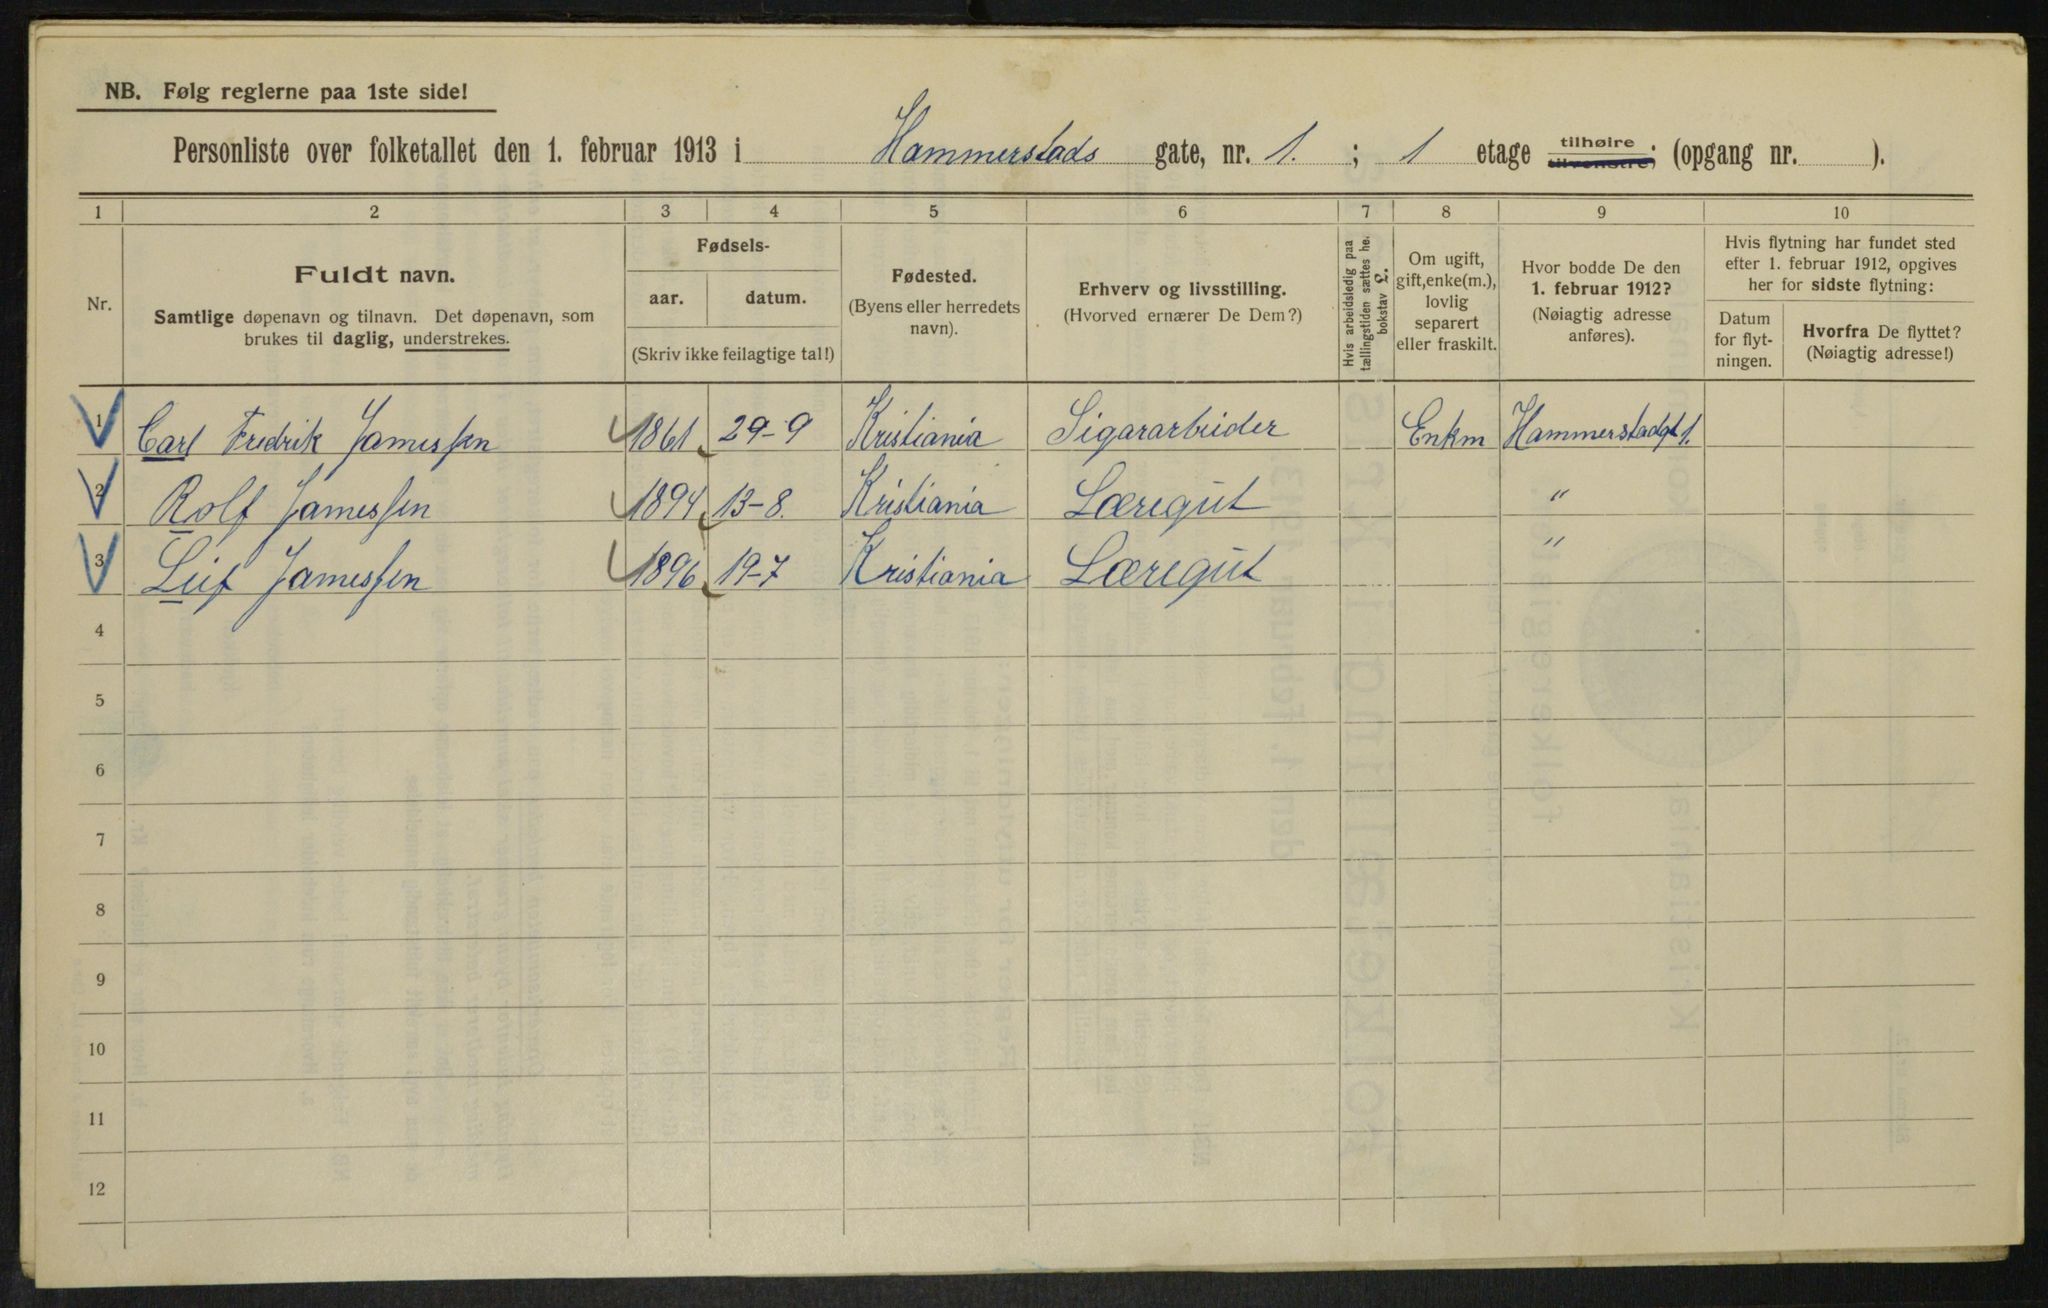 NB. Følg reglerne paa 1ste side!
Personliste over folketallet den 1. februar 1913 i Hammerstads gate, nr. 1. ; 1 etage tilhøire tilvenstre; (opgang nr. ).
1 2 3 4 5 6 7 8 9 10
Nr.
Fuldt navn.
Samtlige døpenavn og tilnavn. Det døpenavn, som
brukes til daglig, understrekes.
Fødsels-
aar. datum.
(Skriv ikke feilagtige tal!)
Fødested.
(Byens eller herredets
navn).
Erhverv og livsstilling.
(Hvorved ernærer De Dem?)
Hvis arbeidsledig paa
tællingstiden sættes her
bokstav L.
Om ugift,
gift, enke(m.),
lovlig
separert
eller fraskilt.
Hvor bodde De den
1. februar 1912?
(Nøiagtig adresse
anføres).
Hvis flytning har fundet sted
efter 1. februar 1912, opgives
her for sidste flytning:
Datum
for flyt-
ningen.
Hvorfra De flyttet?
(Nøiagtig adresse!)
1 Carl Fredrik Jamessen 1861 29-9 Kristiania Sigararbeider Enkm Hammerstadgt 1.
2 Rolf Jamessen 1894 13-8. Kristiania Læregut "
3 Leif Jamessen 1896 19-7 Kristiania Læregut "
4
5
6
7
8
9
10
11
12